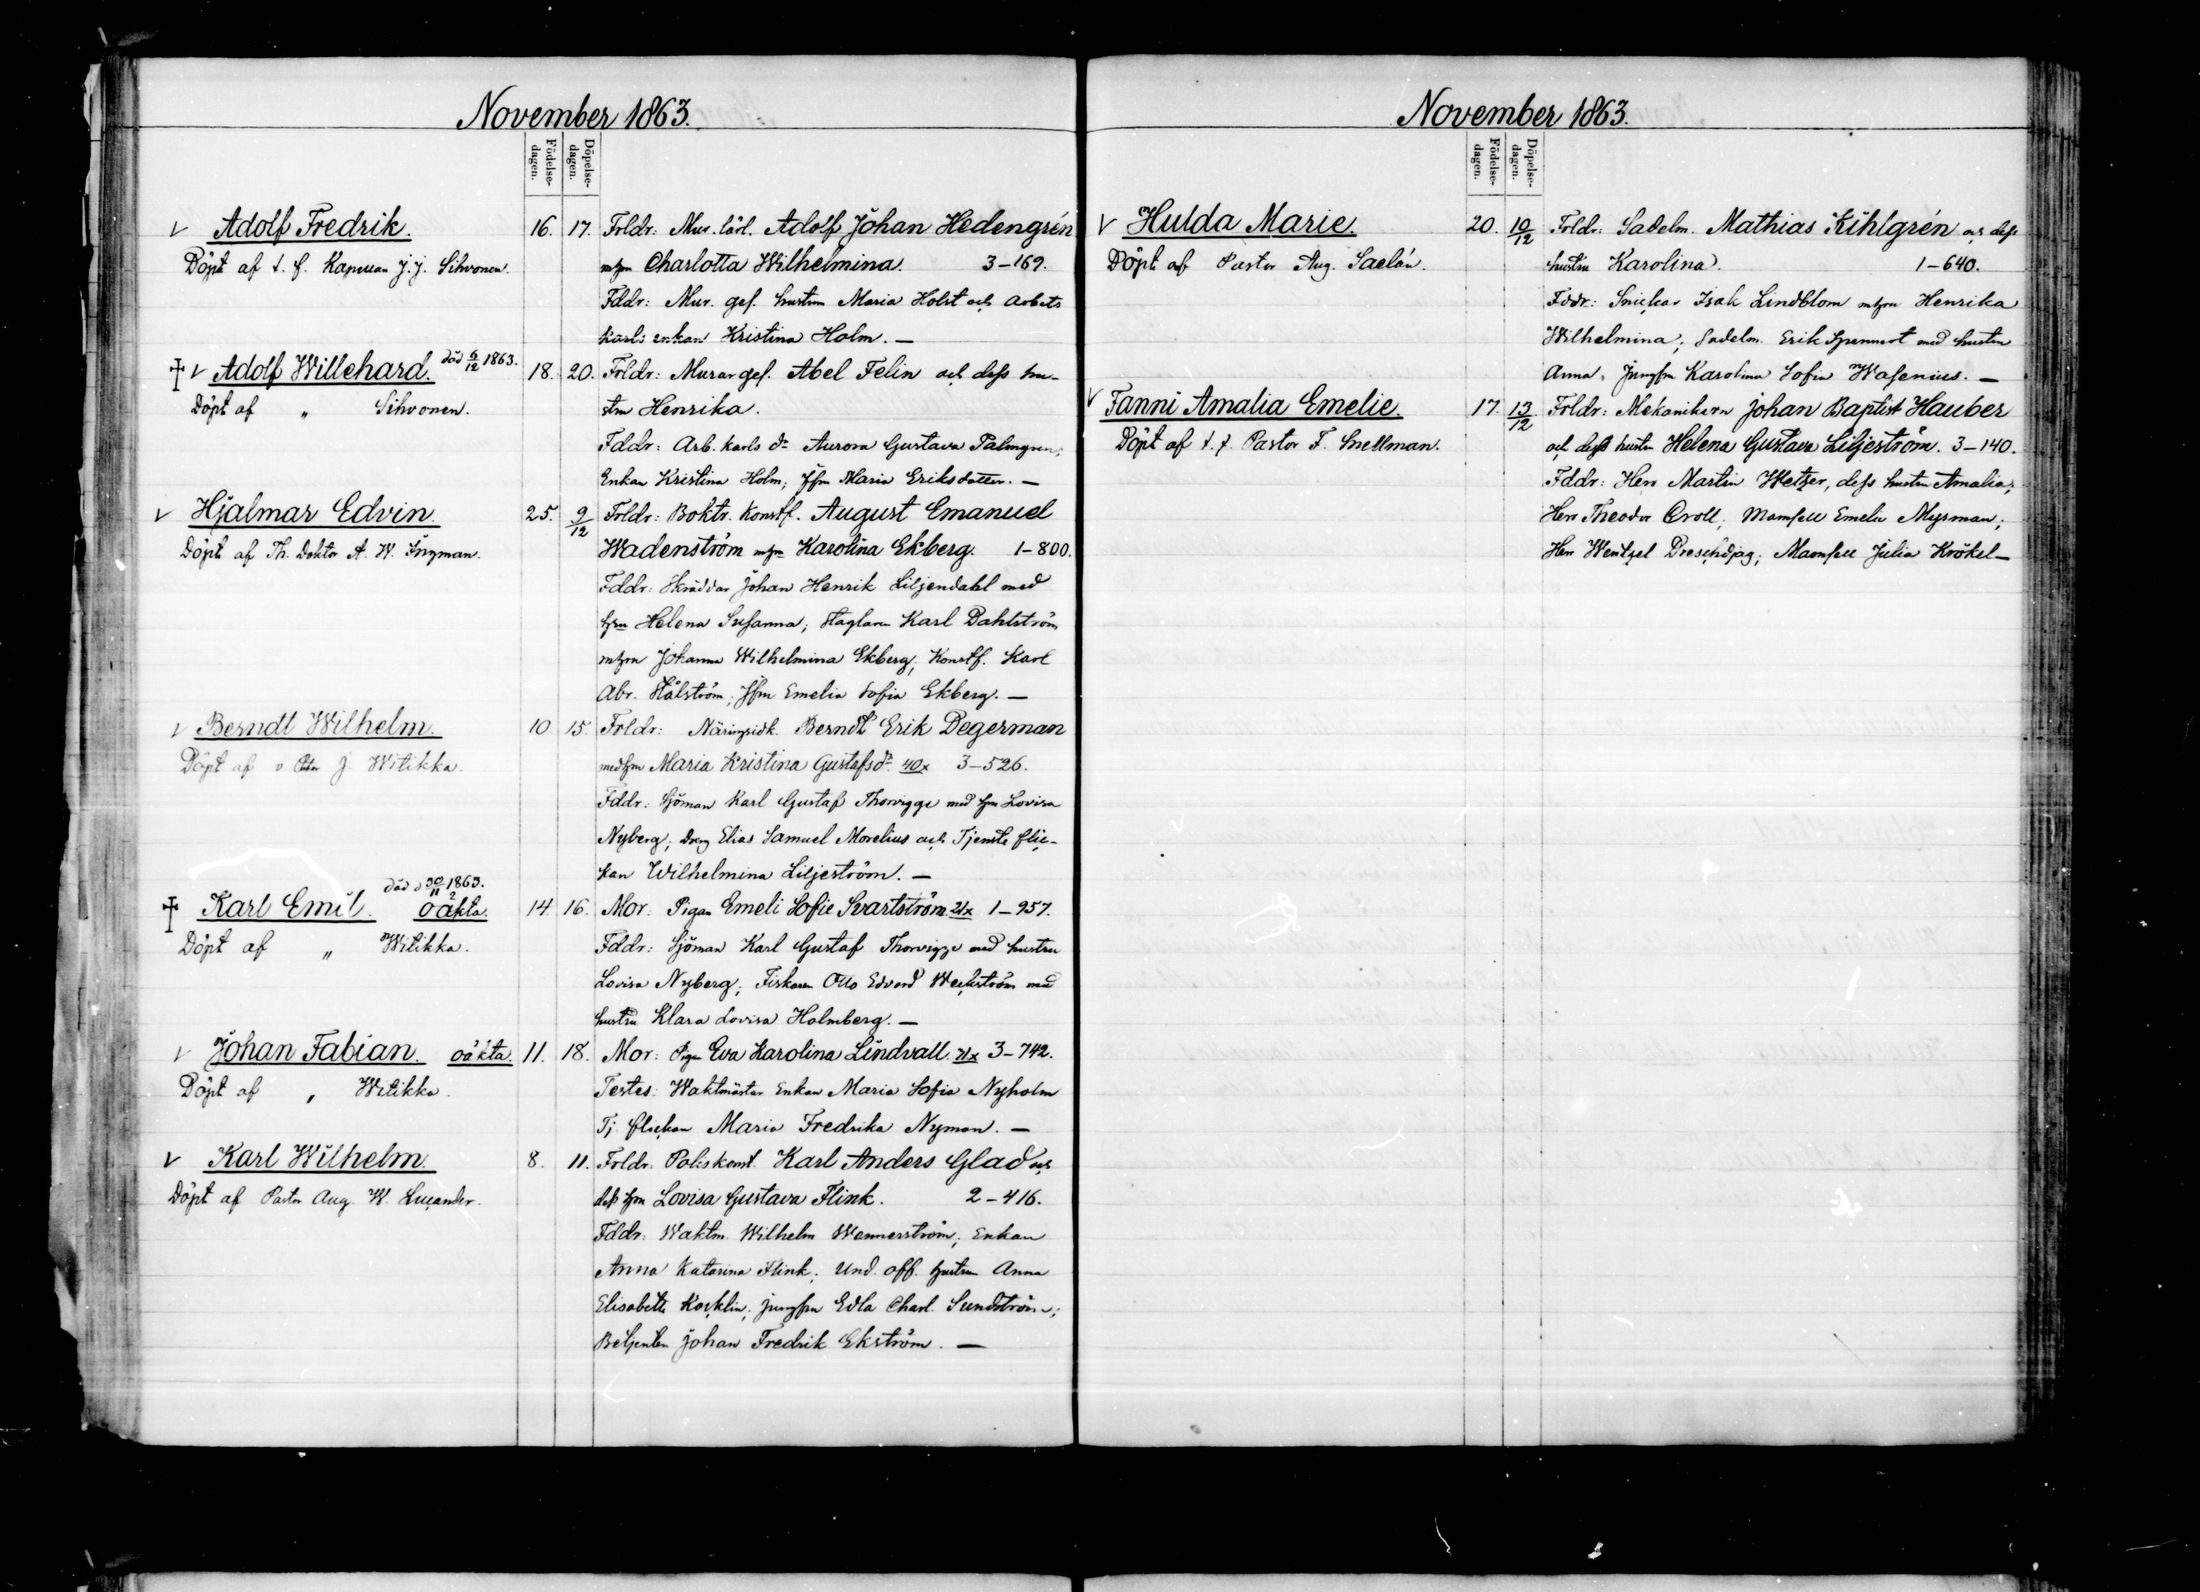 November 1863.
Födelse-
dagen.
Döpelse-
dagen.
v Adolf Fredrik. 16. 17. Frldr: Mur. lärl. Adolf Johan Hedengrén
Döpt af t. f. Kapellan J. J. Sihvonen. mhru Charlotta Wilhelmina. 3-169.
Fddr: Mur. ges. hustrun Maria Holst och Arbets
karls enkan Kristina Holm. —
† v Adolf Willehard. död 6/12 1863. 18. 20. Frldr: Murarges. Abel Felin och dess hu-
Döpt af „ Sihvonen. stru Henrika.
Fddr: Arb. karls dr Aurora Gustava Palmgren;
Enkan Kristina Holm; Jfrn Maria Eriksdotter. —
v Hjalmar Edvin. 25. 9/12 Frldr: Boktr. konstf. August Emanuel
Döpt af Th. Doktor A. W. Ingman. Wadenström mhru Karolina Ekberg. 1-800.
Fddr: Skräddar Johan Henrik Liljendahl med
hru Helena Susanna; Karl Dahlström
mhru Johanna Wilhelmina Ekberg; Konstf. Karl
Abr. Hälström; Jfrn Emelia Sofia Ekberg. —
v Berndt Wilhelm. 10 15. Frldr: Näringsidk. Berndt Erik Degerman
Döpt af v Pastor J. Witikka. med hru Maria Kristina Gustafsdr. 40x 3-526.
Fddr: Sjöman Karl Gustaf Thorvigge med hru Lovisa
Nyberg; Dreng Elias Samuel Morelius och Tjenste flic-
kan Wilhelmina Liljeström. —
död d 30/11 1863.
† Karl Emil. oäkta. 14. 16. Mor: Pigan Emeli Sofie Svartström. 21x 1-957.
Döpt af „ Witikka. Fddr: Sjöman Karl Gustaf Thorvigge med hustru
Lovisa Nyberg; Fiskaren Otto Edvard Weckström med
hustru Klara Lovisa Holmberg. —
v Johan Fabian. oäkta. 11. 18. Mor: Pigan Eva Karolina Lindvall. 21x 3-742.
Döpt af „ Witikka. Testes: Waktmästar Enkan Maria Sofia Nyholm
Tj. flickan Maria Fredrika Nyman. —
v Karl Wilhelm. 8. 11. Frldr: Poliskonst. Karl Anders Glad och
Döpt af Pastor Aug. W. Lucander. dess hru Lovisa Gustava Flink. 2-416.
Fddr: Waktm. Wilhelm Wennerström; Enkan
Anna Katarina Flink; Und. off. hustrun Anna
Elisabeth Kocklin; jungfru Edla Charl. Sundström;
Betjenten Johan Fredrik Ekström. —
November 1863.
Födelse-
dagen.
Döpelse-
dagen.
v Hulda Marie. 20. 10/12 Frldr: Sadelm. Mathias Kihlgrén och dess
Döpt af Pastor Aug. Saelán. hustru Karolina. 1-640.
Fddr: Snickar Isak Lindblom mhru Henrika
Wilhelmina; Sadelm. Erik med hustru
Anna, Jungfru Karolina Sofia Wasenius. —
v Fanni Amalia Emelie. 17. 13/12 Frldr: Mekanikern Johan Baptist Hauber
Döpt af t. f. Pastor F. Snellman. och dess hustru Helena Gustava Liljeström. 3-140.
Fddr: Herr Martin Wetzer, dess hustru Amalia;
Herr Theodor Croll; Mamsell Emelie Myrman;
Herr Wentzel Mamsell Julia Krökel —